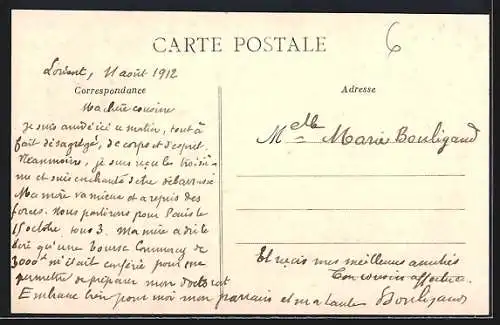 CARTE POSTALE
6
Lorient, 11 août 1912
Correspondance
Adresse
Ma chère cousine
Je suis arrivé ici ce matin, tout à
fait désagrégé, de corps et d'esprit.
Néanmoins, je suis reçu le troisiè
me et suis enchanté d'être débarrassé
Ma mère va mieux et a repris des
forces. Nous partirons pour Paris le
15 octobre, tous 3. Ma mère a
qu'une Bourse Commercy de
3000 f m'était conférée pour me
permettre de préparer mon doctorat
Embrasse bien pour moi mon parrain et ma tante
Mlle Marie Bouligand
Et reçois mes meilleures amitiés
Ton cousin affectueux
Bouligand